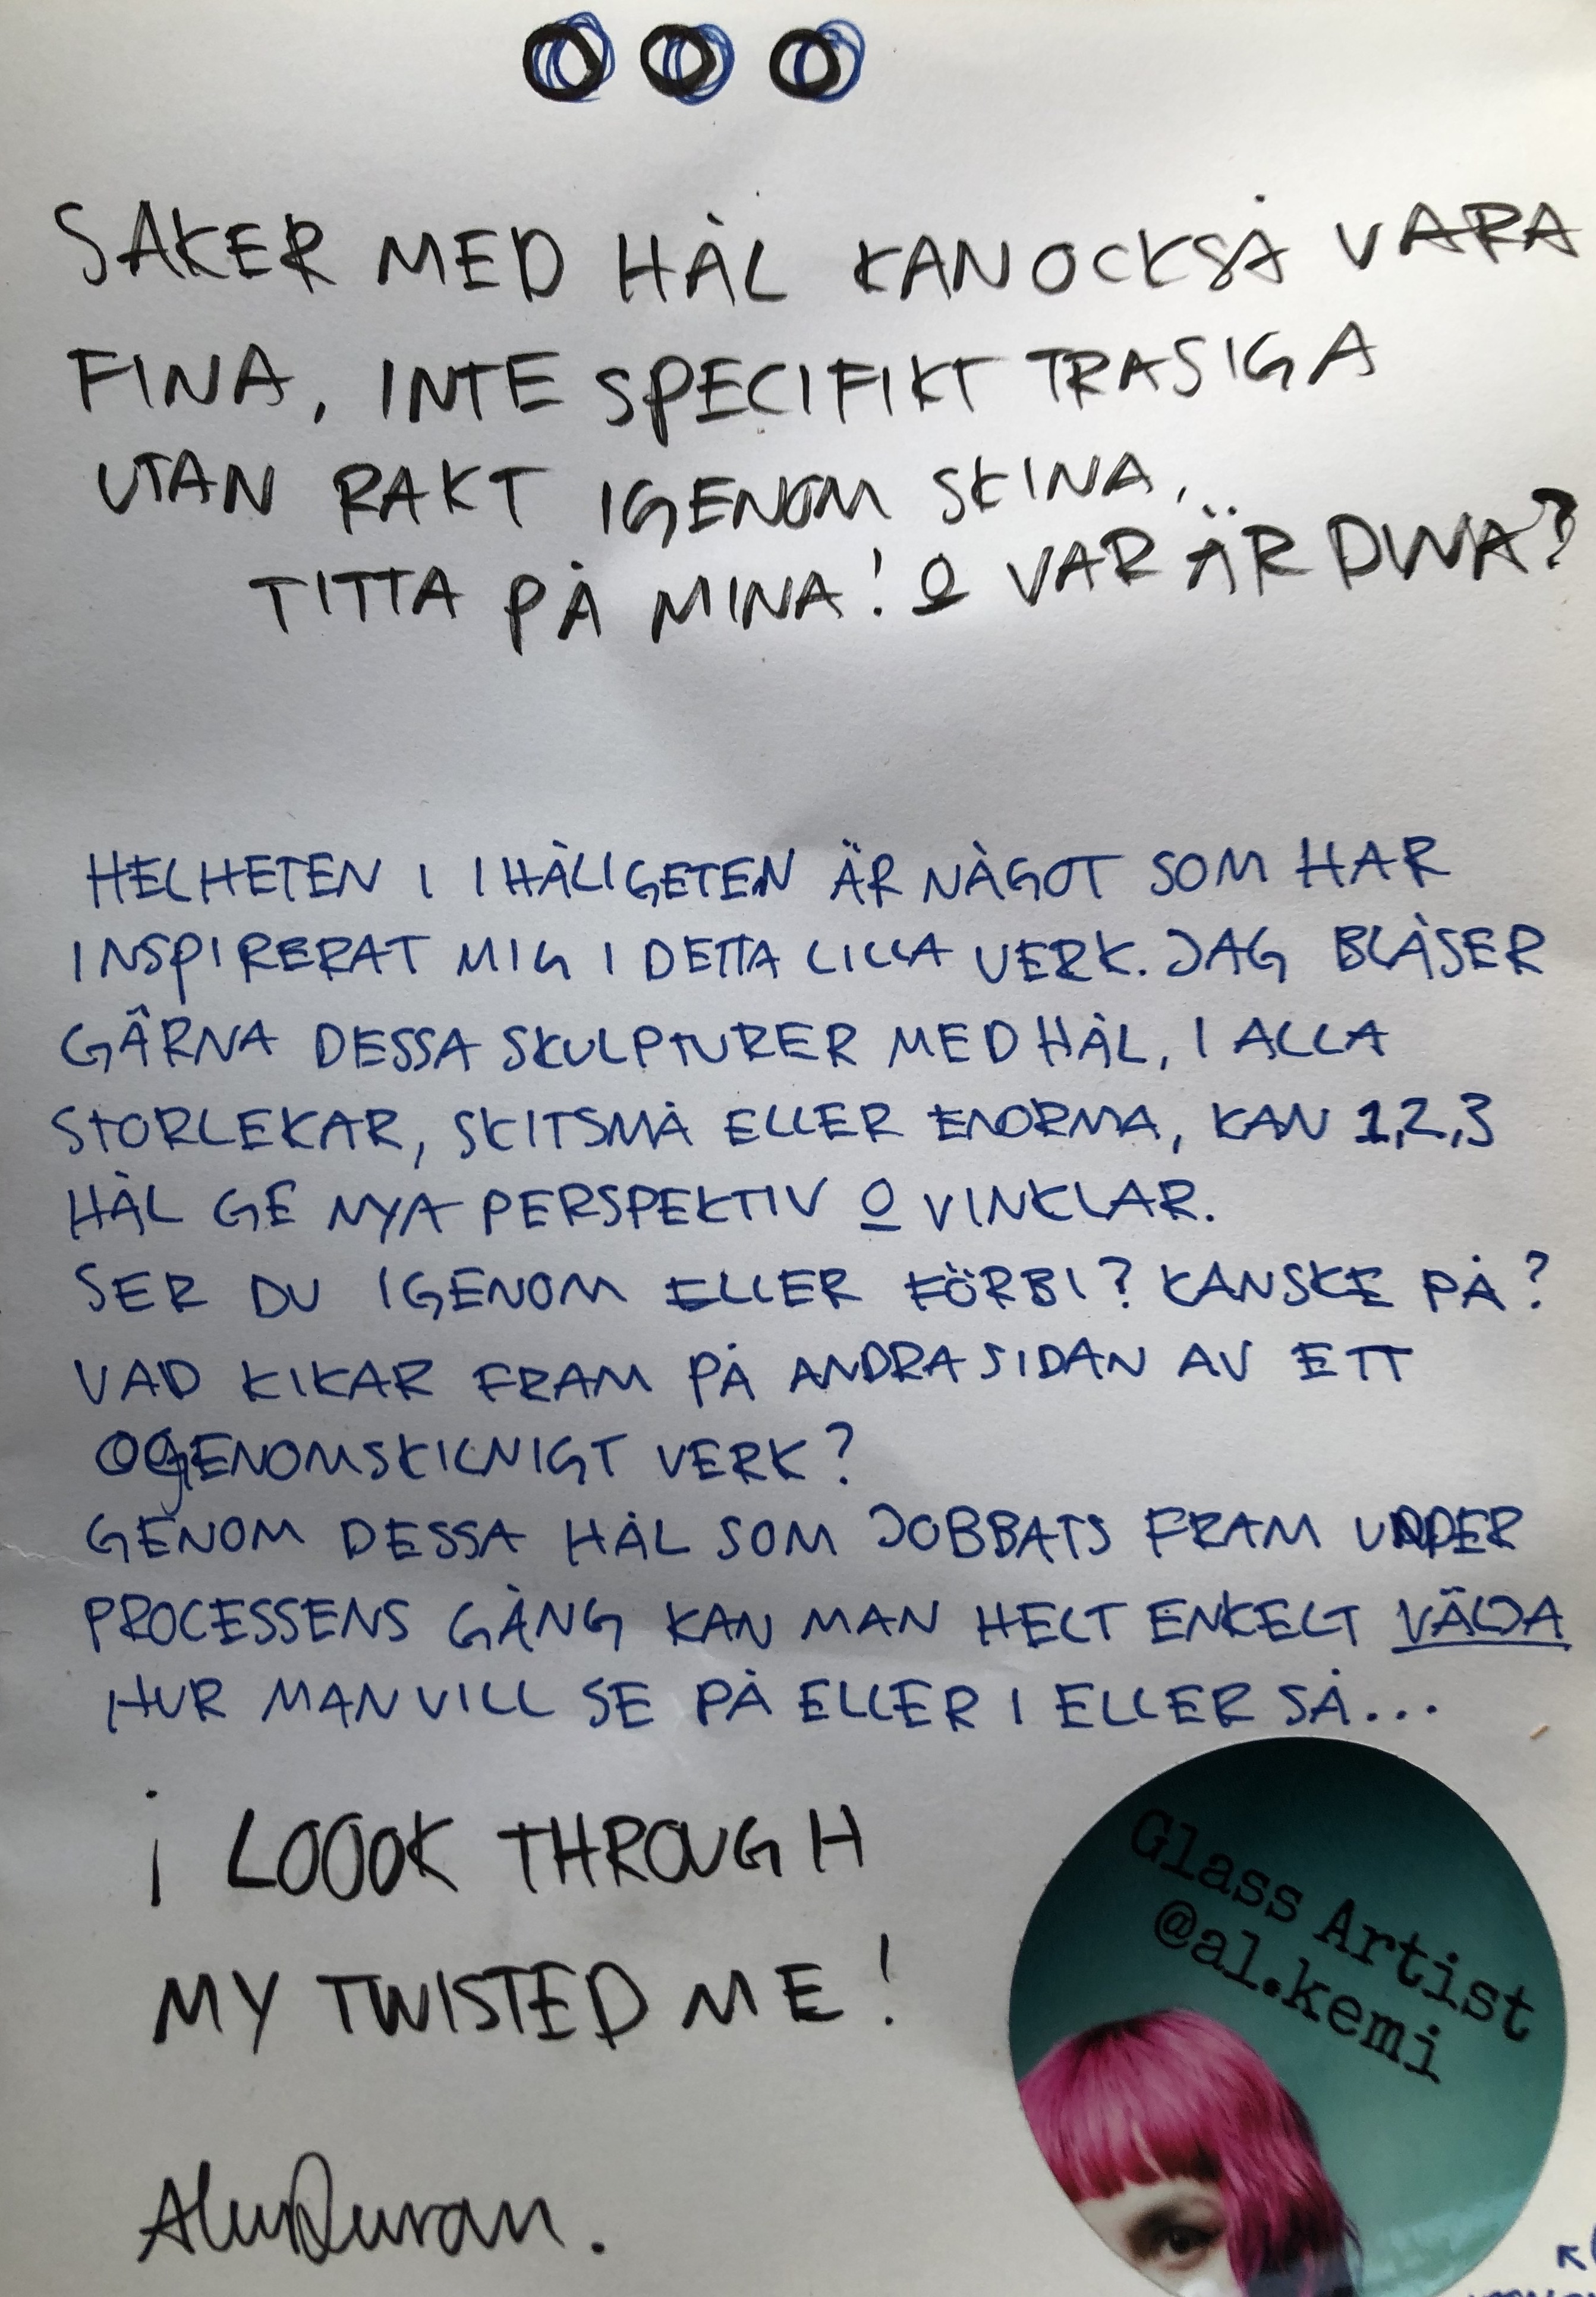 SAKER MED HÅL KAN OCKSÅ VARA
FINA, INTE SPECIFIKT TRASIGA
UTAN RAKT IGENOM SKINA,
TITTA PÅ MINA! O VAR ÄR DINA?
HELHETEN I IHÅLIGETEN ÄR NÅGOT SOM HAR
INSPIRERAT MIG I DETTA LILLA VERK. JAG BLÅSER
GÄRNA DESSA SKULPTURER MED HÅL, I ALLA
STORLEKAR, SKITSMÅ ELLER ENORMA, KAN 1,2,3
HÅL GE NYA PERSPEKTIV O VINKLAR.
SER DU IGENOM ELLER FÖRBI? KANSKE PÅ?
VAD KIKAR FRAM PÅ ANDRA SIDAN AV ETT
OGENOMSKILNIGT VERK?
GENOM DESSA HÅL SOM JOBBATS FRAM UNDER
PROCESSENS GÅNG KAN MAN HELT ENKELT VÄLJA
HUR MAN VILL SE PÅ ELLER I ELLER SÅ...
i LOOOK THROUGH
MY TWISTED ME!
Glass Artist
@al.kemi